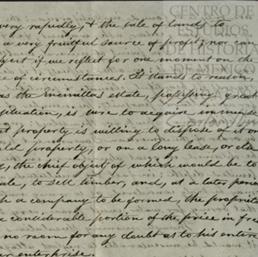 very rapidly, & the sale of lands to
a very fruitful source of profit, nor can
if we reflect for one moment on the
of circumstances. It stands to reason,
as the Miranttes estate, possessing great
situation, is sure to acquire immense
at property is willing to dispose of it on
property, or on a long lease, or else
, the chief object of which would be to
ate, to sell timber, and, at a later period
a company to be formed, the proprietor
considerable portion of the price in free
no room for any doubt as to his entire
enterprise.
CENTRO DE
ESTUDIOS
DE HISTORIA
DE MÉXICO